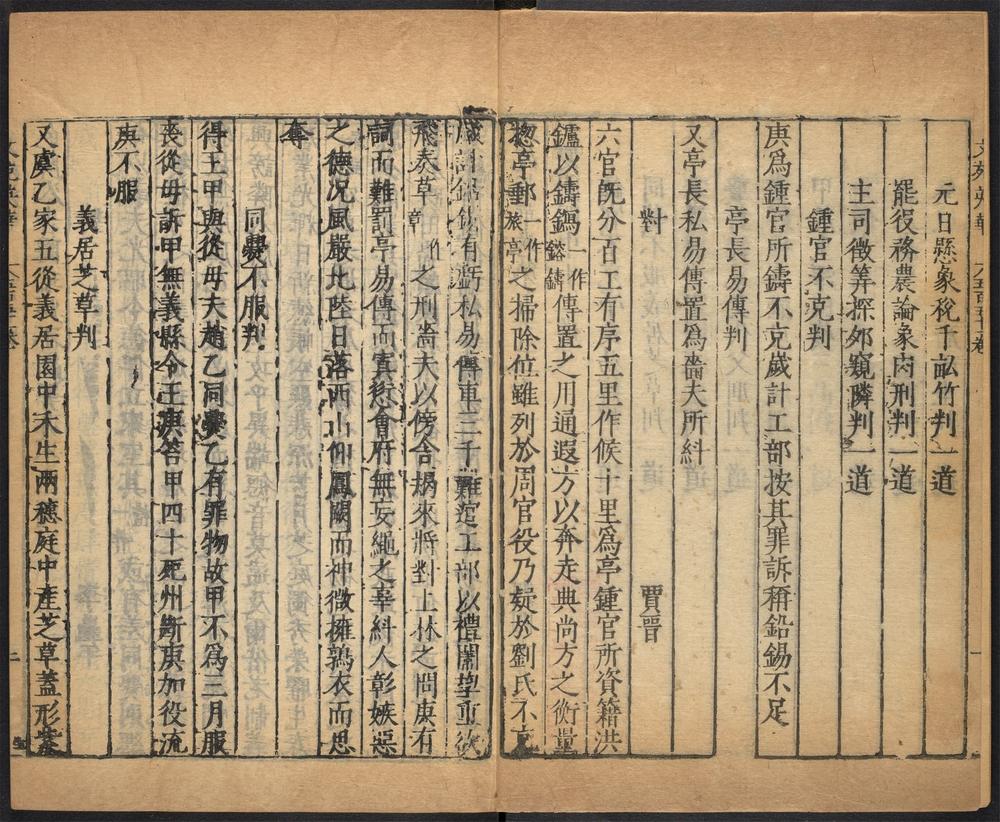 元日懸象稅千畝竹判一道
罷役務農論象肉刑判一道
主司徵筭探郊窺隣判一道
鍾官不克判
庚爲鍾官所鑄不克歲計工部按其罪訴稱鉛錫不足
亭長易傳判
又亭長私易傳置爲嗇夫所糾
對 賈晉
六官旣分百工有序五里作候十里爲亭鍾官所資籍洪
鑪以鑄鎢一作鎔鑄傳置之用通遐方以奔走典尚方之衡量
揔亭郵一作旅亭之掃除位雖列於周官役乃疑於劉氏不
歲計鉛錫有虧私易傳車三千難 工部以禮闈 重欲
飛泰草一作章之刑嗇夫以傍舍 來將對上林之問庚有
詞而難罰亭易傳而 會府無妄繩之辜糾人彰嫉惡
之德况風嚴北陸日落西山仰鳳闕而神微擁鶉衣而思
奪
同爨不服判
得王甲與從母夫趙乙同爨乙有罪物故甲不爲三月服
喪從母訴甲無義縣令王庚笞甲四十死州斷庚加役流
庚不服
義居芝草判
又虞乙家五從義居園中禾生兩穗庭中產芝草蓋形